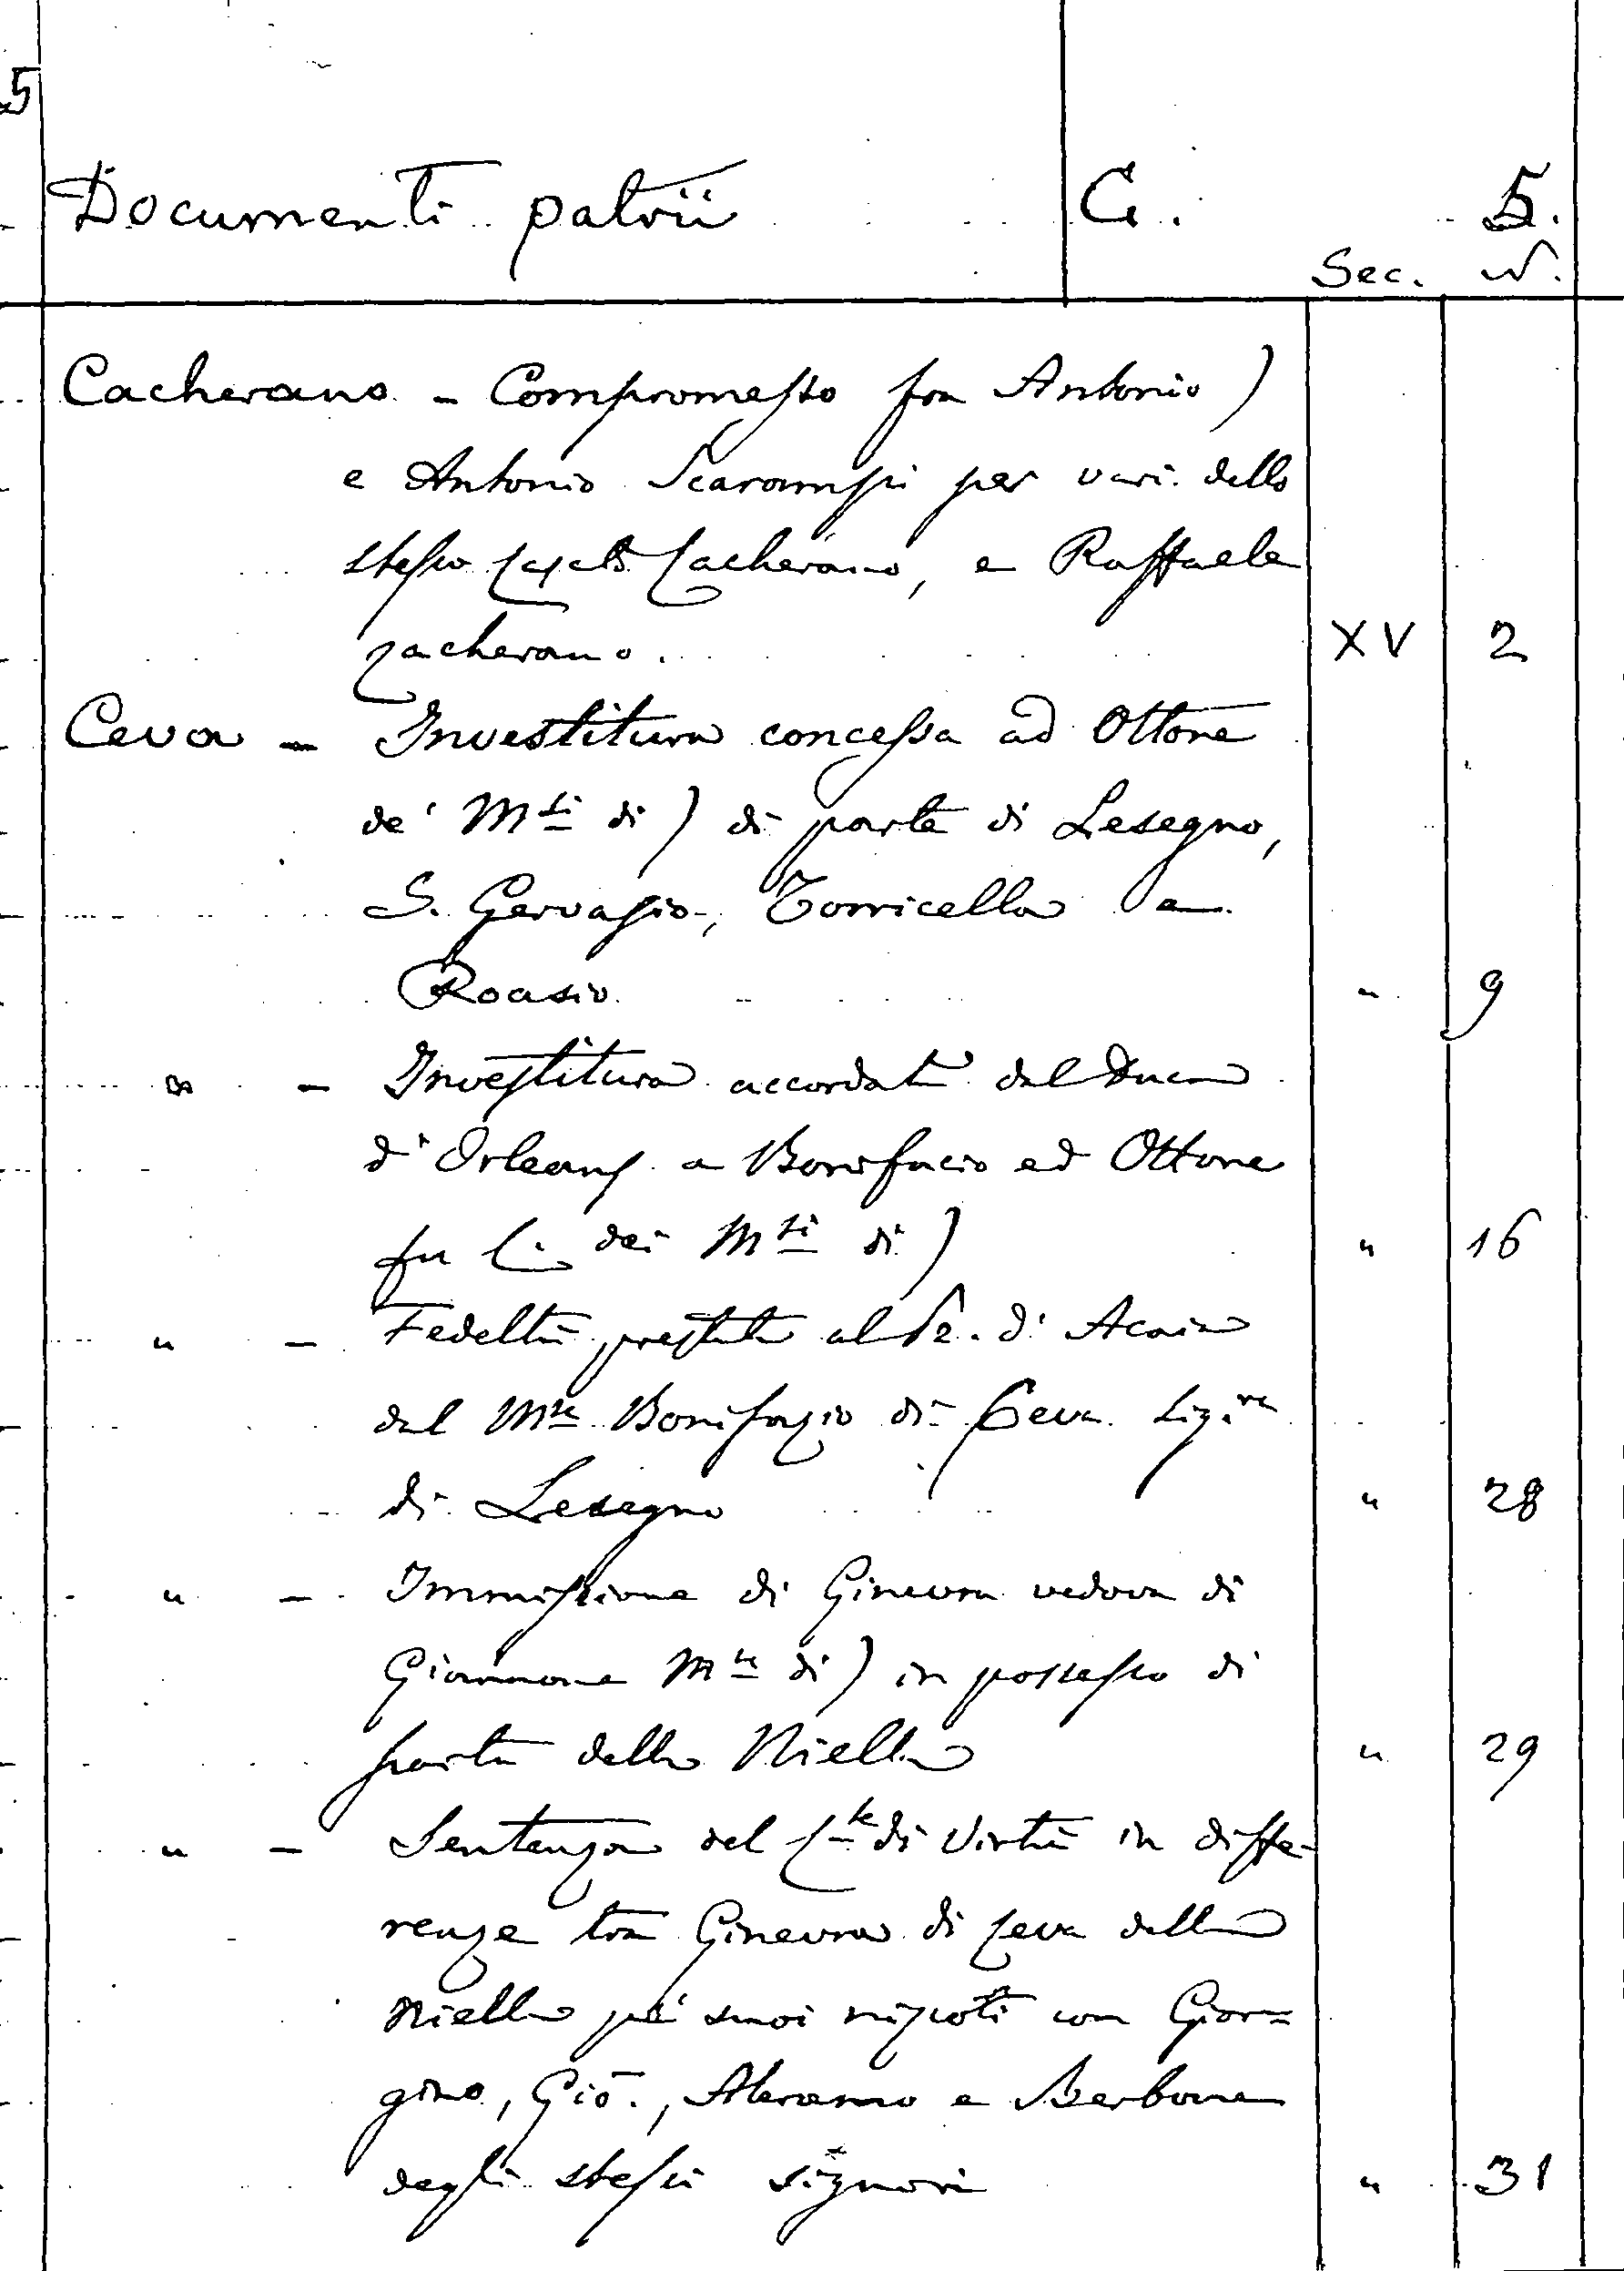 5
Documenti patrii C. 5.
Sec. N.
Cacherano - Compromesso fra Antonio )
e Antonio Scarampi per vari dello
stesso Cacherano, e Raffaele
Cacherano. XV 2
Ceva - Investitura concessa ad Ottone
de' Msi di ) di parte di Lesegno,
S. Gervasio, Torricella e
Roasio " 9
" - Investitura accordata dal Duca
d'Orleans a Bonifacio ed Ottone
fu C. dei Msi di ) " 16
" - Fedeltà prestata al Pr. d'Acaia
dal Mse Bonifazio di Ceva Sig.re
di Lesegno " 28
" - Immissione di Ginevra vedova di
Giannone Mse di ) in possesso di
parte della Niella " 29
" - Sentenza del Cte di Virtù in diffe-
renze tra Ginevra di Ceva della
Niella pe' suoi nipoti con Gior=
gino, Giō., Aleramo e Berbone
degli stessi signori " 31